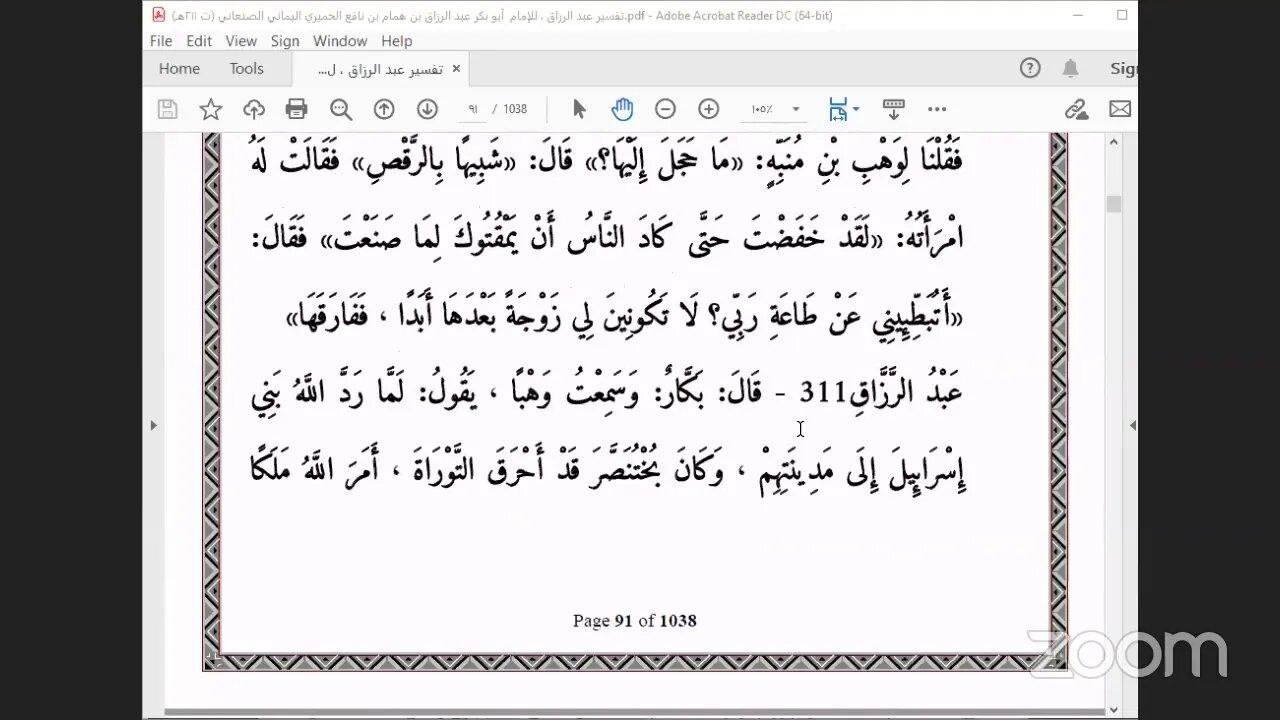 تفسير عبد الرزاق ، للإمام أبو بكر عبد الرزاق بن همام بن نافع الحميري اليماني الصنعاني (ت ٢١١هـ).pdf - Adobe Acrobat Reader DC (64-bit)
File Edit View Sign Window Help
Home Tools تفسير عبد الرزاق ، ل... × Sign
٩١ / 1038 ١٠٥٪
فَقُلْنَا لِوَهْبِ بْنِ مُنَبِّهٍ: «مَا حَجَلَ إِلَيْهَا؟» قَالَ: «شَبِيهًا بِالرَّقْصِ» فَقَالَتْ لَهُ
امْرَأَتُهُ: «لَقَدْ خَفَضْتَ حَتَّى كَادَ النَّاسُ أَنْ يَمْقُتُوكَ لِمَا صَنَعْتَ» فَقَالَ:
«أَتُبَطِّيِينِي عَنْ طَاعَةِ رَبِّي؟ لَا تَكُونِينَ لِي زَوْجَةً بَعْدَهَا أَبَدًا ، فَفَارَقَهَا»
عَبْدُ الرَّزَّاقِ311 - قَالَ: بَكَّارٌ: وَسَمِعْتُ وَهْبًا ، يَقُولُ: لَمَّا رَدَّ اللَّهُ بَنِي
إِسْرَايِيلَ إِلَى مَدِينَتِهِمْ ، وَكَانَ بُخْتُنَصَّرَ قَدْ أَحْرَقَ التَّوْرَاةَ ، أَمَرَ اللَّهُ مَلَكًا
Page 91 of 1038
zoom